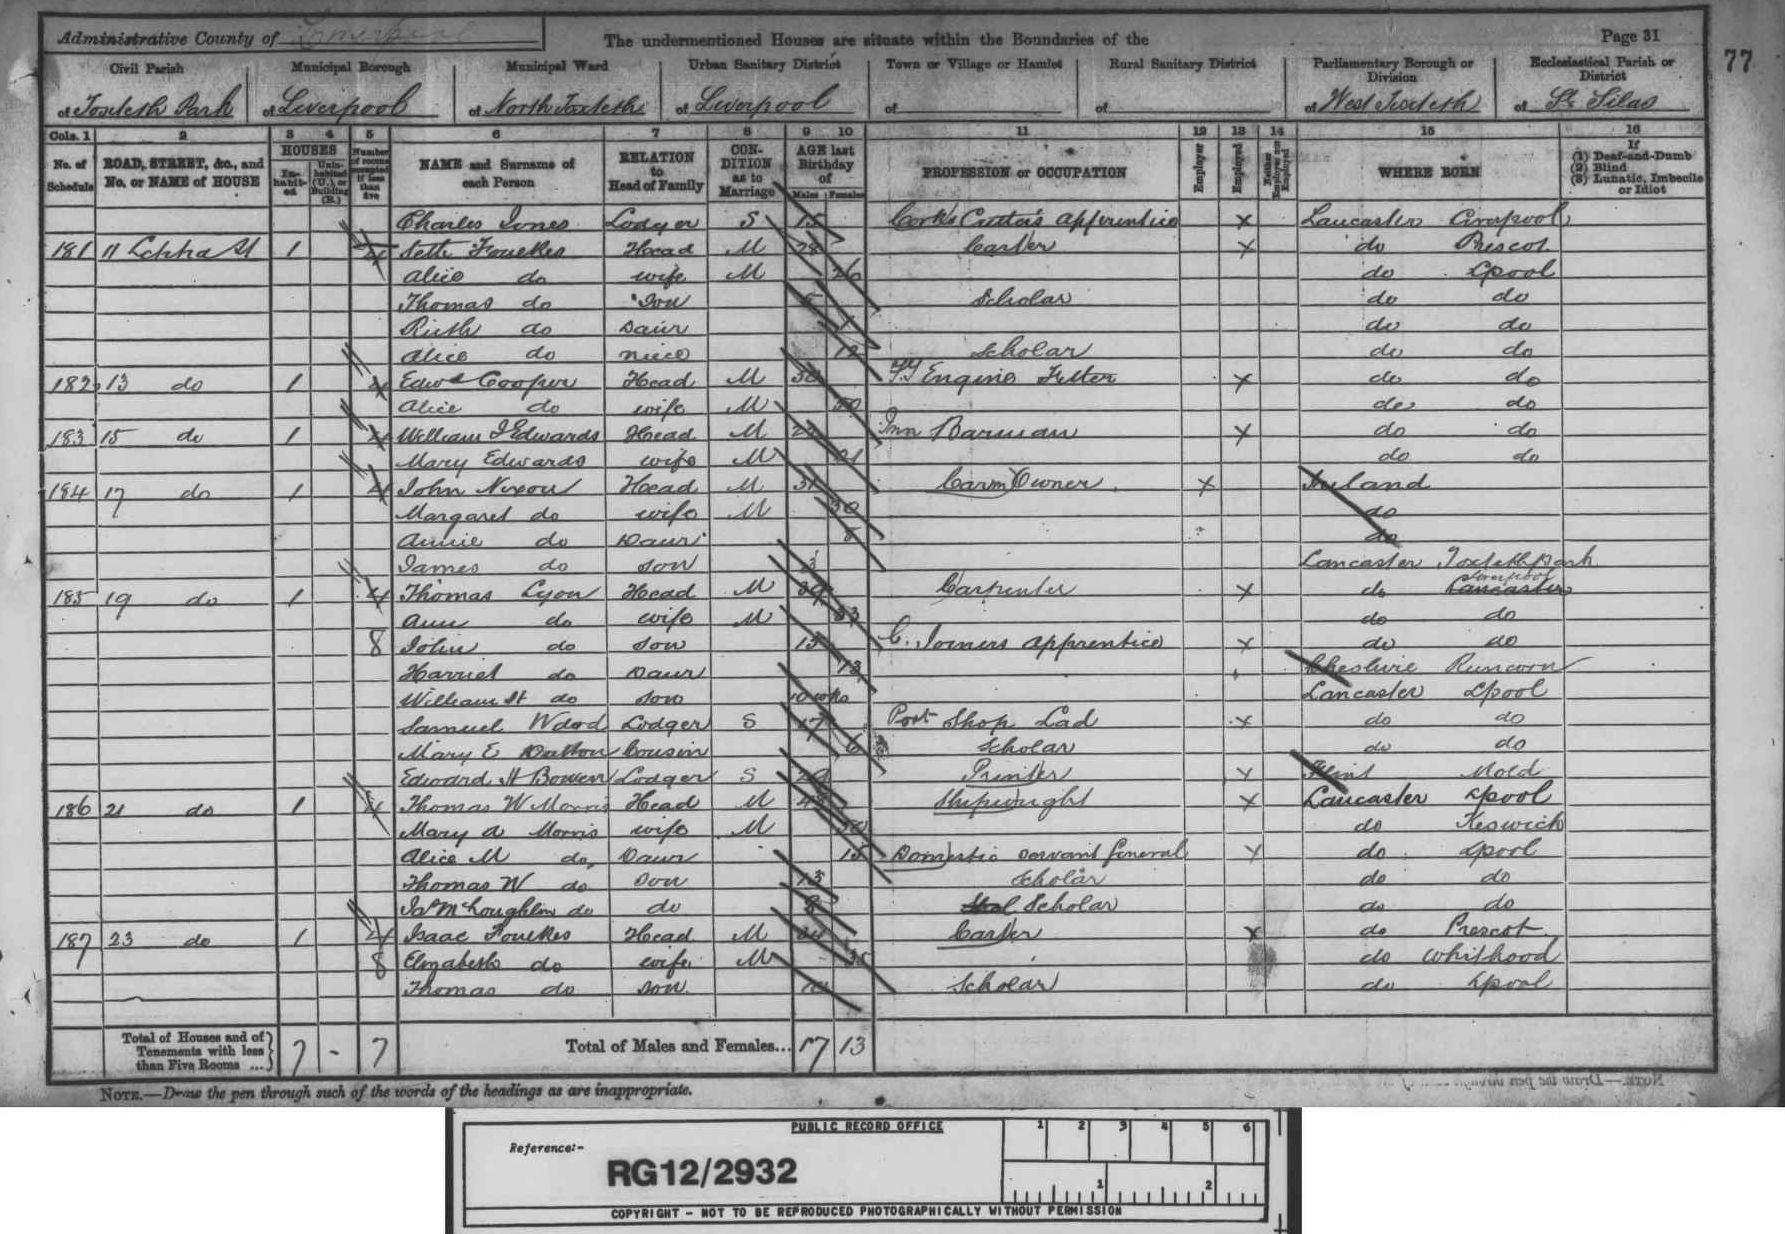 Administrative County of Liverpool
The undermentioned Houses are situate within the Boundaries of the
Page 31
77
Civil Parish
of Toxteth Park
Municipal Borough
of Liverpool
Municipal Ward
of North Toxteth
Urban Sanitary District
of Liverpool
Town or Village or Hamlet
of
Rural Sanitary District
of
Parliamentary Borough or Division
of West Toxteth
Ecclesiastical Parish or District
of St Silas
Cols. 1 2 3 4 5 6 7 8 9 10 11 12 13 14 15 16
No. of Schedule
ROAD, STREET, &c., and No. or NAME of HOUSE
HOUSES
Inhabited
Uninhabited (U.), or Building (B.)
Number of rooms occupied if less than five
NAME and Surname of each Person
RELATION to Head of Family
CONDITION as to Marriage
AGE last Birthday of
Males Females
PROFESSION or OCCUPATION
Employer
Employed
Neither Employer nor Employed
WHERE BORN
If
(1) Deaf-and-Dumb
(2) Blind
(3) Lunatic, Imbecile or Idiot
Charles Jones Lodger S 15 Cork Cutter's apprentice X Lancaster Liverpool
181 11 St 1 4 Seth Foulkes Head M 28 Carter X do Prescot
Alice do wife M 26 do Lpool
Thomas do Son 5 Scholar do do
Ruth do Daur 1 do do
Alice do niece 12 Scholar do do
182 13 do 1 4 Edwd Cooper Head M 50 Engine Fitter X do do
Alice do wife M 50 do do
183 15 do 1 4 William J Edwards Head M Inn Barman X do do
Mary Edwards wife M 21 do do
184 17 do 1 4 John Nixon Head M 31 Owner X Ireland
Margaret do wife M 30 do
Annie do Daur do
James do son 3 Lancaster Toxteth Park
185 19 do 1 4 Thomas Lyon Head M 39 Carpenter X do Liverpool Lancaster
Ann do wife M do do
8 John do son 15 C. Joiners apprentice X do do
Harriet do Daur 13 Cheshire Runcorn
William H do son 10 wks Lancaster Lpool
Samuel Wood Lodger S 17 Port Shop Lad X do do
Mary E Dutton Cousin 6 Scholar do do
Edward H Bowen Lodger S 29 Printer X Flint Mold
186 21 do 1 4 Thomas W Morris Head M Shipwright X Lancaster Lpool
Mary A Morris wife M do Keswick
Alice M do Daur 15 Domestic servant General X do Lpool
Thomas W do Son 13 Scholar do do
Jas McLoughlin do do 8 Schol Scholar do do
187 23 do 1 4 Isaac Foulkes Head M Carter X do Prescot
8 Elizabeth do wife M 35 do
Thomas do son Scholar do Lpool
Total of Houses and of Tenements with less than Five Rooms ... 7 - 7
Total of Males and Females... 17 13
NOTE.—Draw the pen through such of the words of the headings as are inappropriate.
PUBLIC RECORD OFFICE
1 2 3 4 5 6
Reference:-
RG12/2932
1 2
COPYRIGHT - NOT TO BE REPRODUCED PHOTOGRAPHICALLY WITHOUT PERMISSION